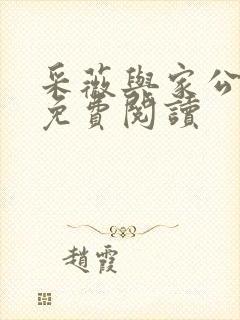 采薇與家公
免費閱讀
趙霞